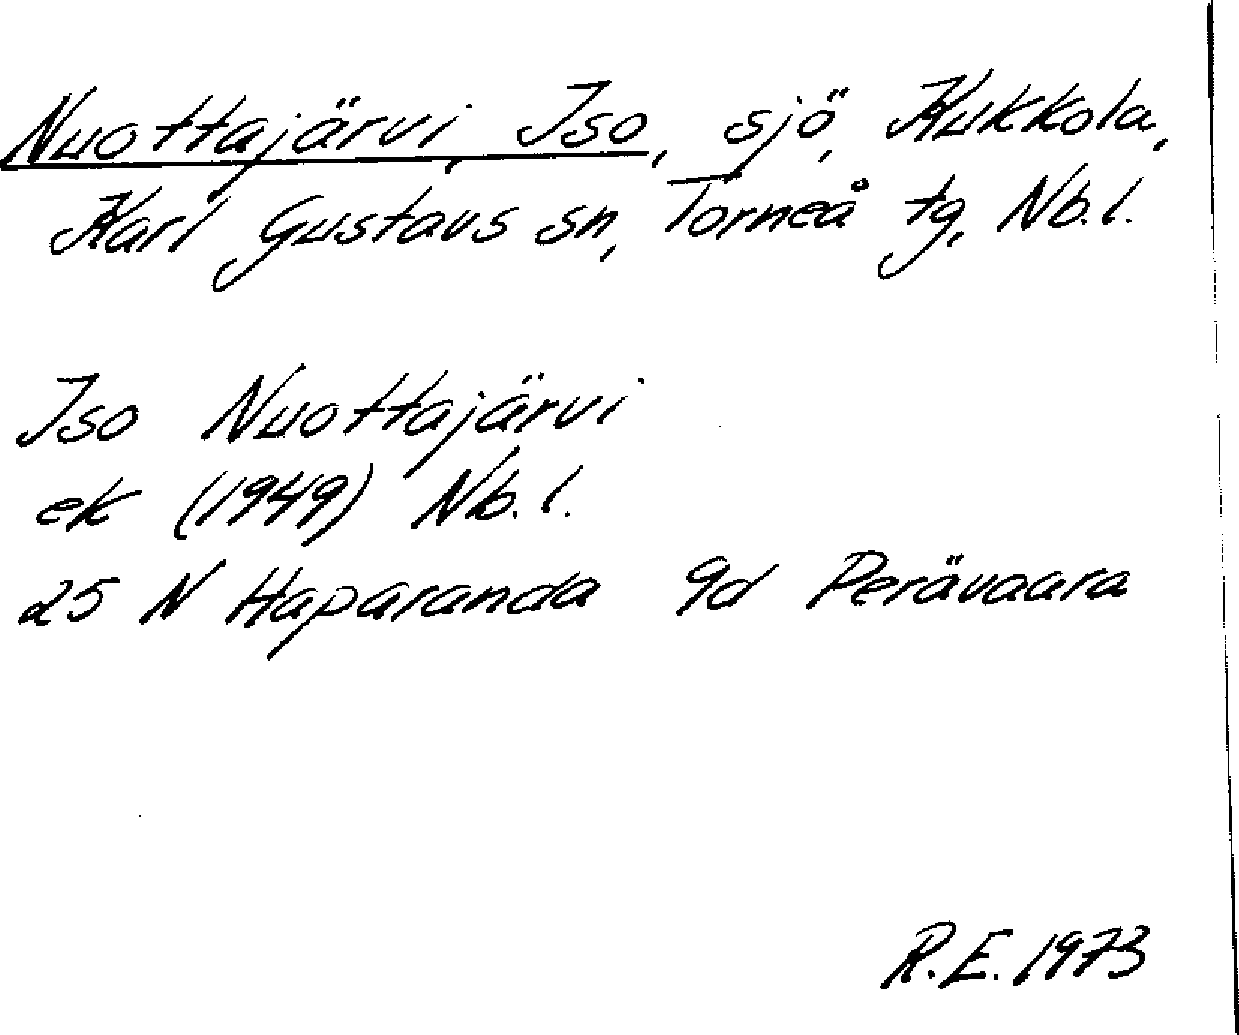 Nuottajärvi, Iso, sjö, Kukkola,
Karl Gustavs sn, Torneå tg, Nb.l.
Iso Nuottajärvi
ek (1949) Nb.l.
25 N Haparanda 9d Perävaara
R.E. 1973